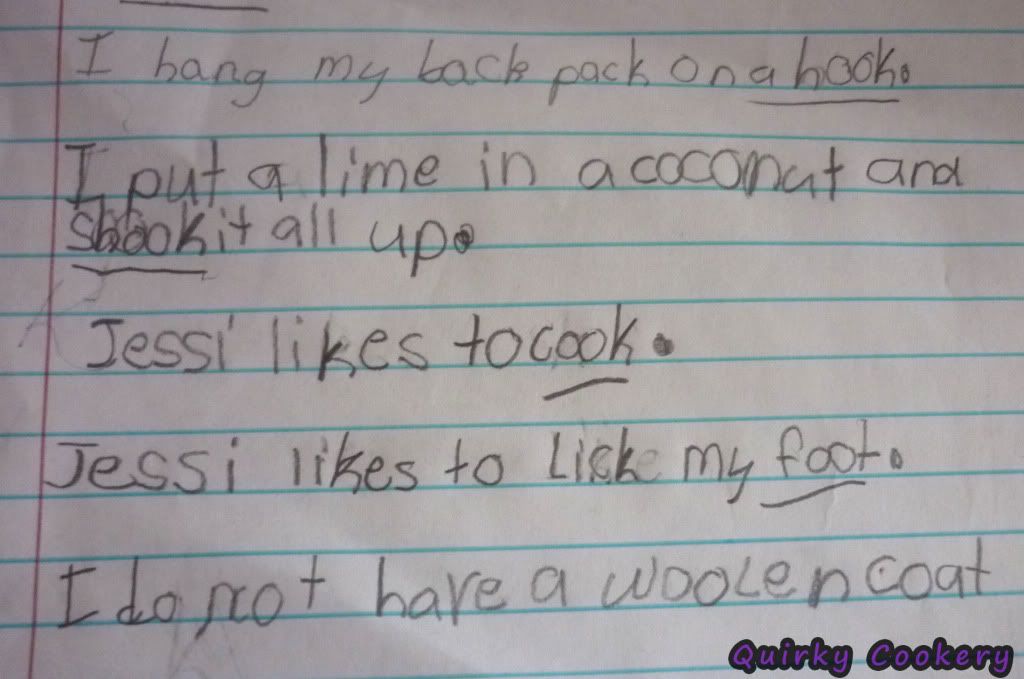 I hang my back pack on a hook.
I put a lime in a coconut and
shook it all up.
Jessi likes to cook.
Jessi likes to Lick my foot.
I do not have a woolen coat
Quirky Cookery